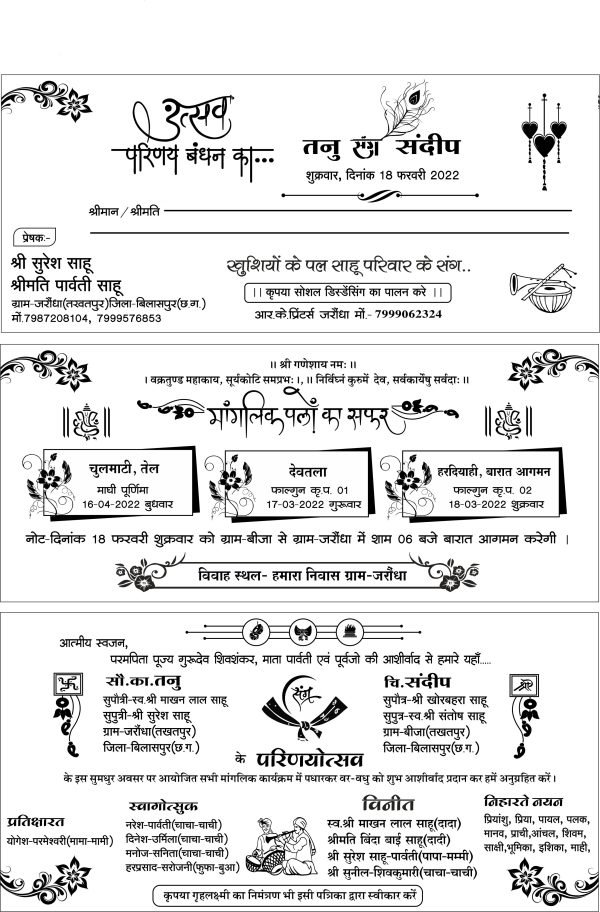 उत्सव
परिणय बंधन का...
तनु संग संदीप
शुक्रवार, दिनांक 18 फरवरी 2022
श्रीमान / श्रीमति
प्रेषकः-
श्री सुरेश साहू
श्रीमति पार्वती साहू
ग्राम-जरौंधा(तखतपुर)जिला-बिलासपुर(छ.ग.)
मों.7987208104, 7999576853
खुशियों के पल साहू परिवार के संग..
।। कृपया सोशल डिस्डेंसिंग का पालन करे ।।
आर.के.प्रिंटर्स जरौंधा मों.- 7999062324
॥ श्री गणेशाय नमः ॥
। वक्रतुण्ड महाकाय, सूर्यकोटि समप्रभः।, ॥ निर्विघ्नं कुरुमें देव, सर्वकार्येषु सर्वदाः॥
मांगलिक पलों का सफर
चुलमाटी, तेल
माघी पूर्णिमा
16-04-2022 बुधवार
देवतला
फाल्गुन कृ.प. 01
17-03-2022 गुरूवार
हरदियाही, बारात आगमन
फाल्गुन कृ.प. 02
18-03-2022 शुक्रवार
नोट-दिनांक 18 फरवरी शुक्रवार को ग्राम-बीजा से ग्राम-जरौंधा में शाम 06 बजे बारात आगमन करेगी ।
विवाह स्थल- हमारा निवास ग्राम-जरौंधा
आत्मीय स्वजन,
परमपिता पूज्य गुरूदेव शिवशंकर, माता पार्वती एवं पूर्वजो की आशीर्वाद से हमारे यहाँ.....
सौ.का.तनु
सुपौत्री-स्व.श्री माखन लाल साहू
सुपुत्री-श्री सुरेश साहू
ग्राम-जरौंधा(तखतपुर)
जिला-बिलासपुर(छ.ग.)
संग
चि.संदीप
सुपौत्र-श्री खोरबहरा साहू
सुपुत्र-स्व.श्री संतोष साहू
ग्राम-बीजा(तखतपुर)
जिला-बिलासपुर(छ.ग.)
के परिणयोत्सव
के इस सुमधुर अवसर पर आयोजित सभी मांगलिक कार्यक्रम में पधारकर वर-वधु को शुभ आशीर्वाद प्रदान कर हमें अनुग्रहित करें।
प्रतिक्षारत
योगेश-परमेश्वरी(मामा-मामी)
स्वागोत्सुक
नरेश-पार्वती(चाचा-चाची)
दिनेश-उर्मिला(चाचा-चाची)
मनोज-सनिता(चाचा-चाची)
हरप्रसाद-सरोजनी(फुफा-बुआ)
विनीत
स्व.श्री माखन लाल साहू(दादा)
श्रीमति बिंदा बाई साहू(दादी)
श्री सुरेश साहू-पार्वती(पापा-मम्मी)
श्री सुनील-शिवकुमारी(चाचा-चाची)
निहारते नयन
प्रियांशु, प्रिया, पायल, पलक,
मानव, प्राची,आंचल, शिवम,
साक्षी,भूमिका, इशिका, माही,
कृपया गृहलक्ष्मी का निमंत्रण भी इसी पत्रिका द्वारा स्वीकार करें